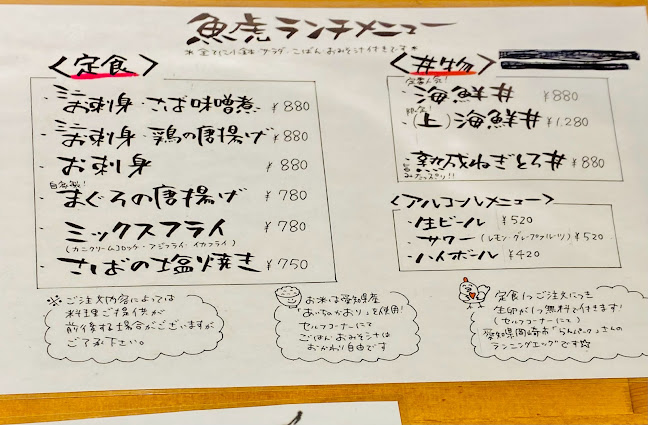 魚虎ランチメニュー
＊全てに小鉢・サラダ・ごはん・おみそ汁付きです＊
〈定食〉
・ミニお刺身・さば味噌煮 ¥880
・ミニお刺身・鶏の唐揚げ ¥880
・お刺身 ¥880
・まぐろの唐揚げ ¥780
・ミックスフライ ¥780
(カニクリームコロッケ・アジフライ・イカフライ)
・さばの塩焼き ¥750
〈丼物〉
定番人気!
・海鮮丼 ¥880
・(上)海鮮丼 ¥1,280
・熟成ねぎとろ丼 ¥880
〈アルコールメニュー〉
・生ビール ¥520
・サワー(レモン・グレープフルーツ) ¥520
・ハイボール ¥420
※ご注文内容によっては
料理ご提供が
前後する場合がございますが
ご了承下さい。
お米は愛知県産
「あいちのかおり」を使用!
セルフコーナーにて
ごはん・おみそ汁は
おかわり自由です
定食1つご注文につき
生卵が1つ無料で付きます!
(セルフコーナーにて)
愛知県岡崎市「らんパーク」さんの
ランニングエッグです☆